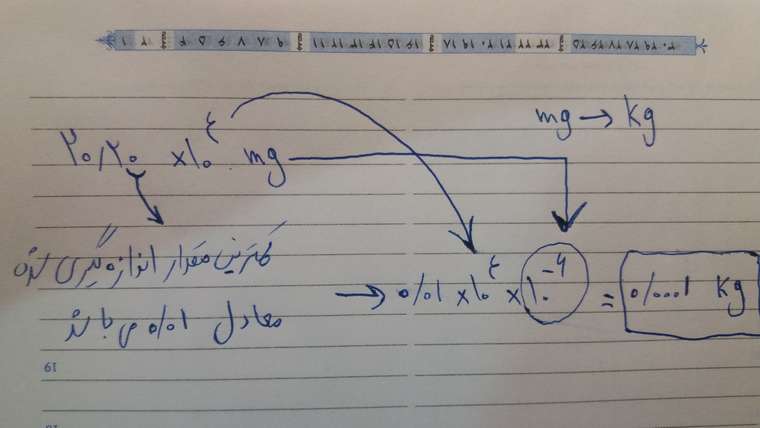 ۱ ۲ جمعه ۴ ۵ ۶ ۷ ۸ ۹ جمعه ۱۱ ۱۲ ۱۳ ۱۴ ۱۵ ۱۶ جمعه ۱۸ ۱۹ ۲۰ ۲۱ ۲۲ ۲۳ جمعه ۲۵ ۲۶ ۲۷ ۲۸ ۲۹ ۳۰
mg → kg
۲۰/۲۰ ×۱۰^٤ mg
کمترین مقدار اندازه گیری شده
معادل ۰/۰۱ می باشد
→ ۰/۰۱ ×۱۰^٤ ×۱۰^-۶ = ۰/۰۰۰۱ kg
19